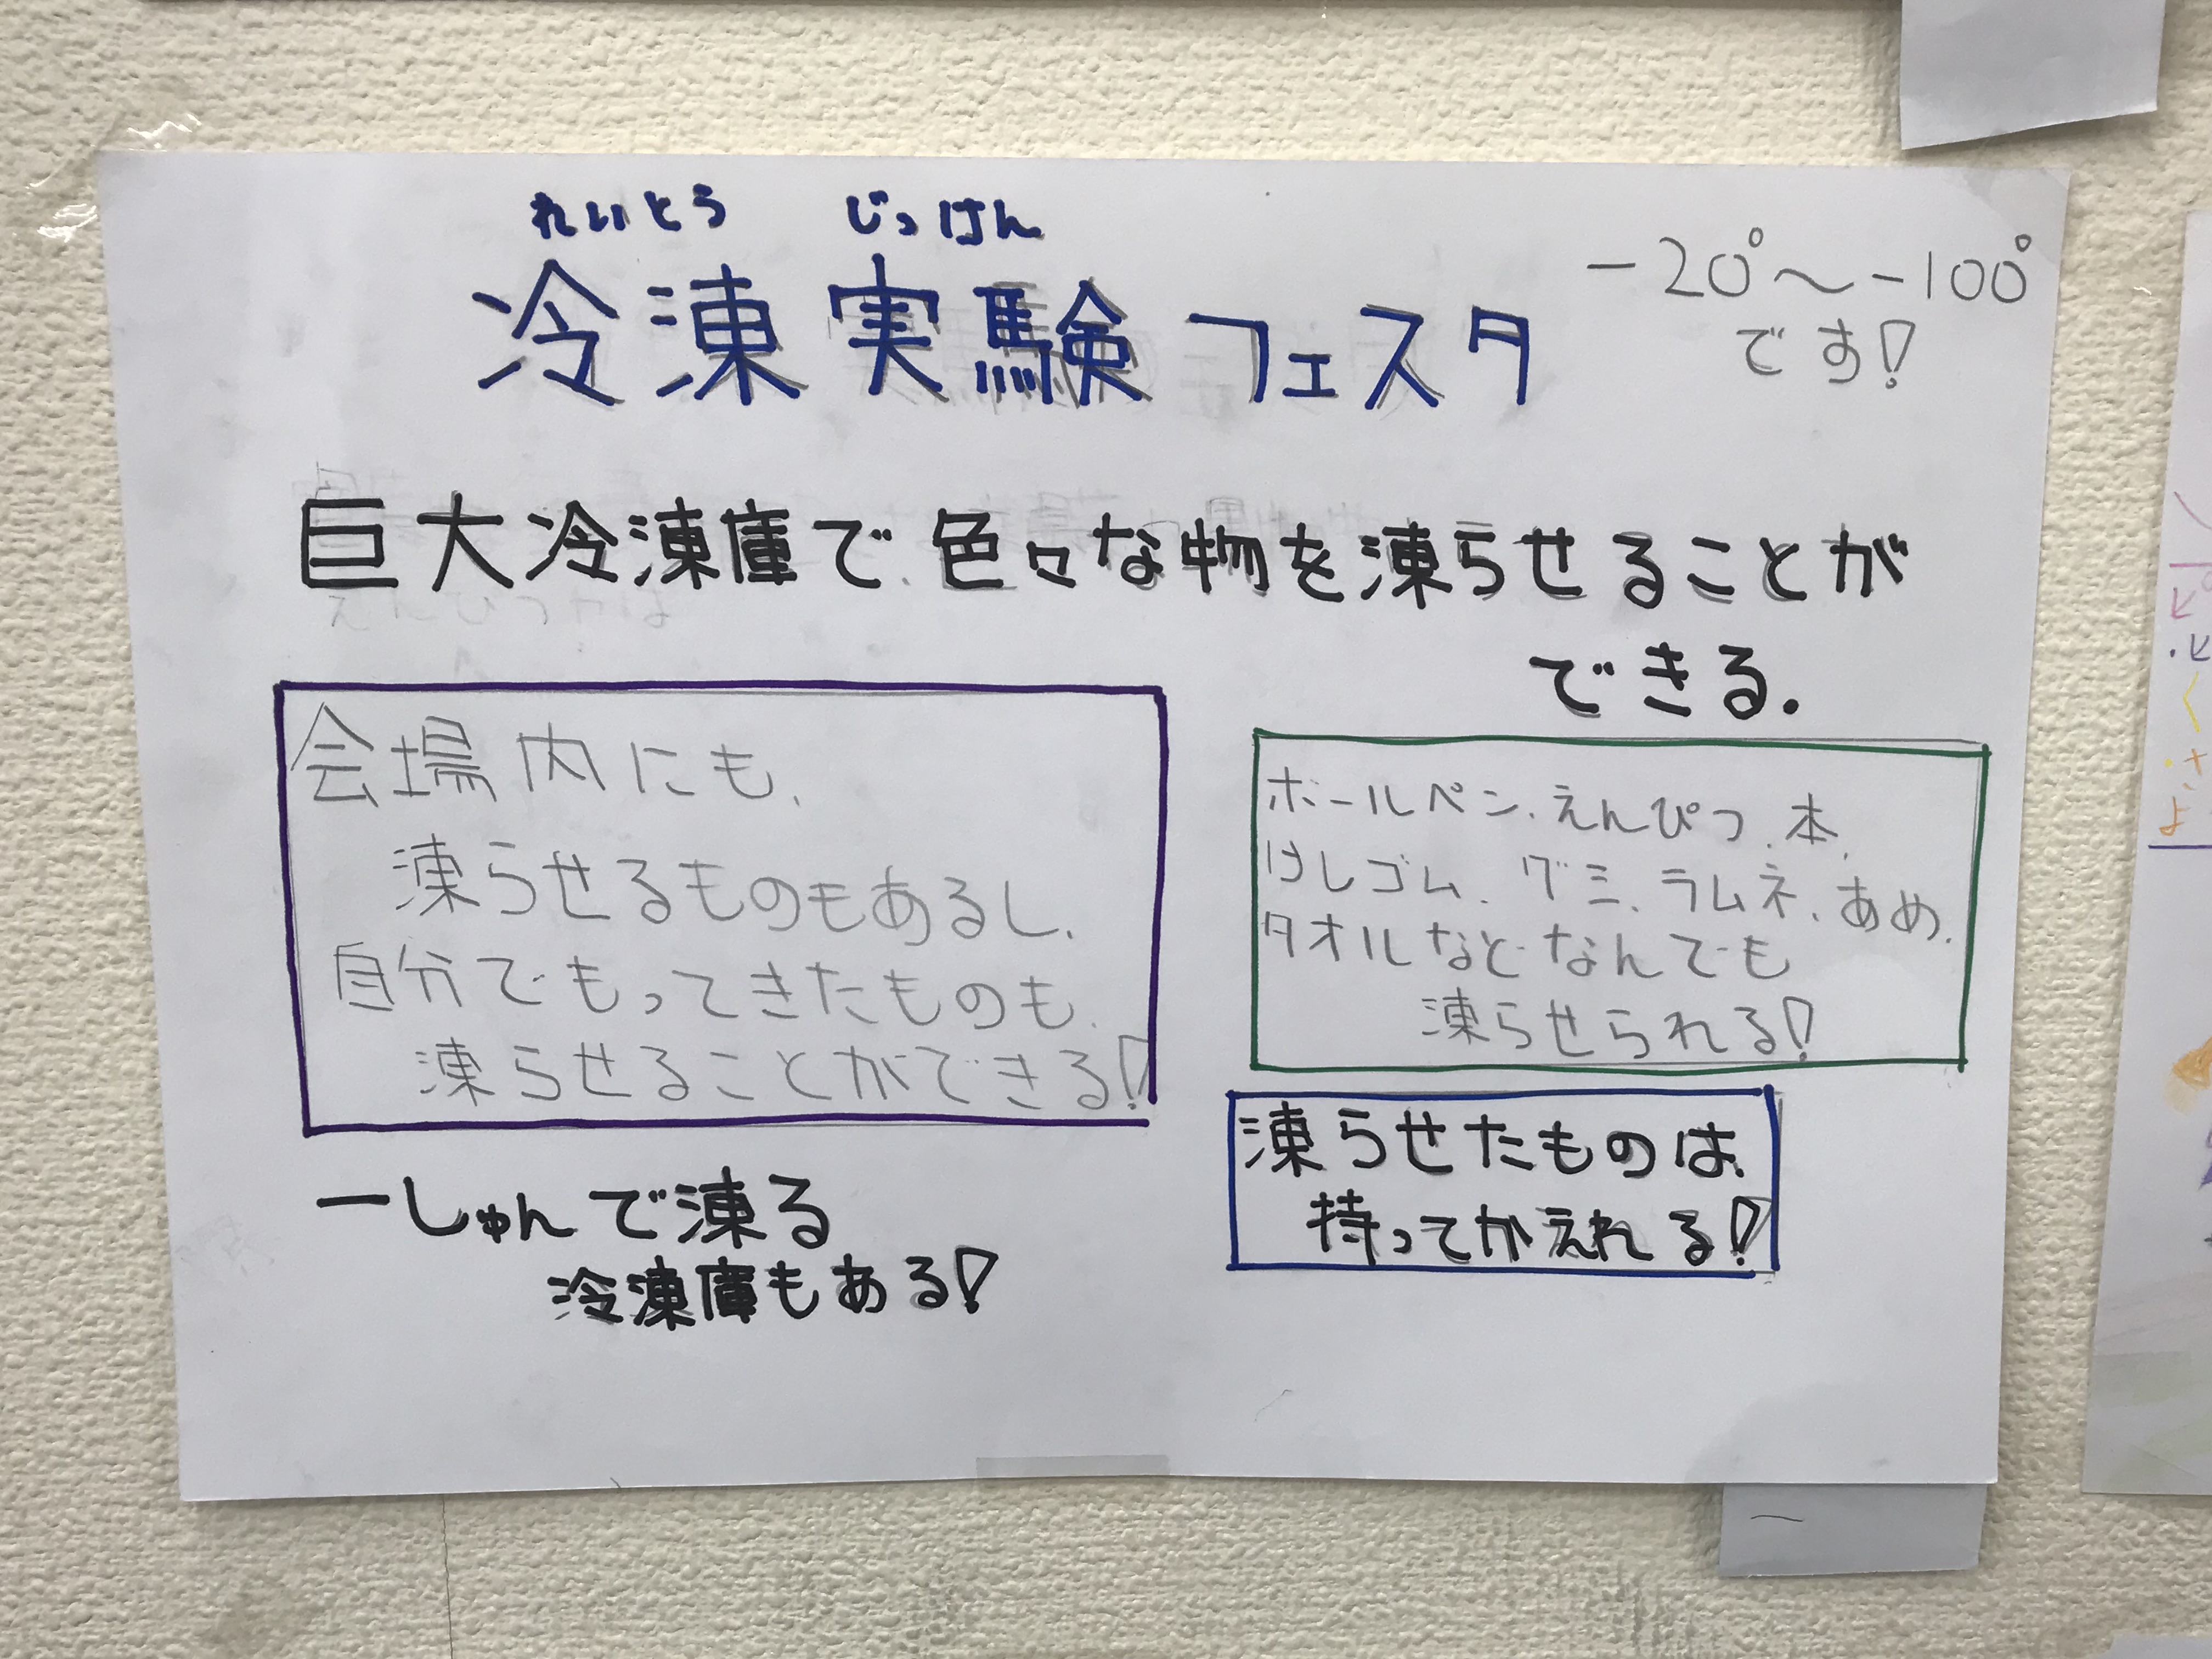 れいとう じっけん
冷凍実験フェスタ
-20°～-100°
です!
巨大冷凍庫で、色々な物を凍らせることが
できる.
会場内にも、
凍らせるものもあるし、
自分でもってきたものも、
凍らせることができる!
ボールペン、えんぴつ、本、
けしゴム、グミ、ラムネ、あめ、
タオルなどなんでも
凍らせられる!
一しゅんで凍る
冷凍庫もある!
凍らせたものは、
持ってかえれる!